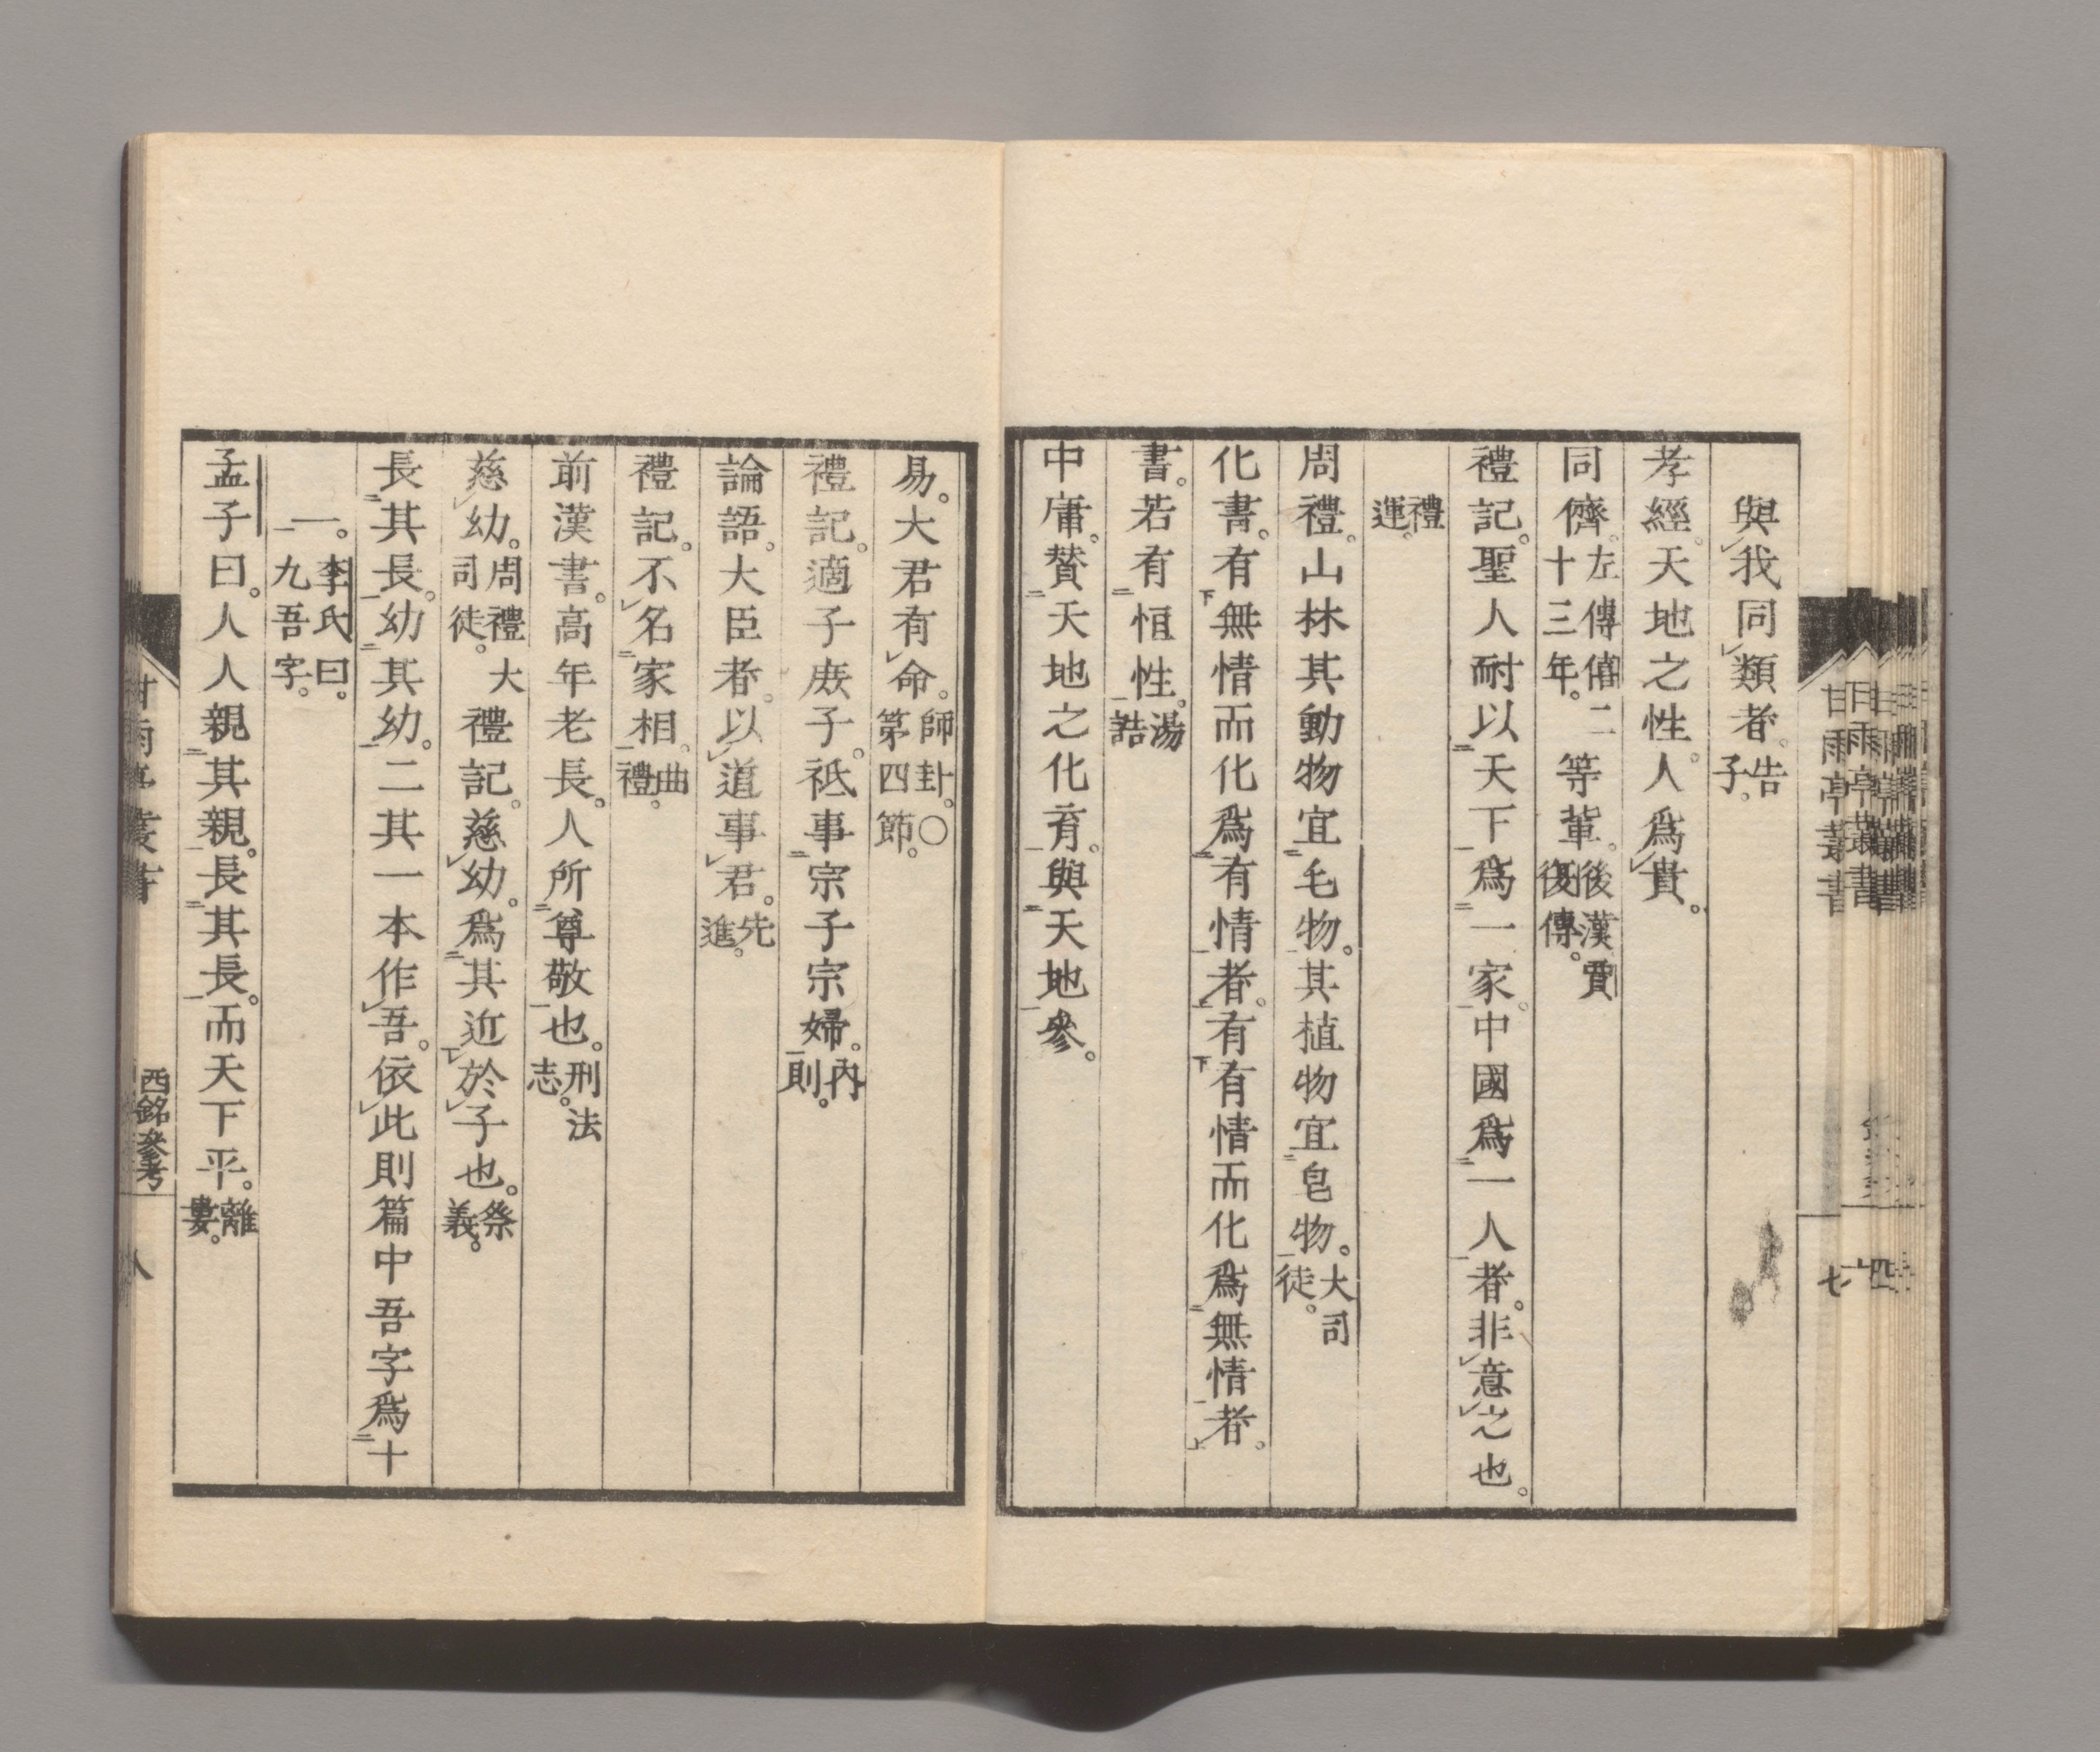 與我同類者。告子。
孝經。天地之性。人爲貴。
同儕。左傳僖二十三年。等輩。後漢賈復傳。
禮記。聖人耐以天下爲一家。中國爲一人者。非意之也。
禮運。
周禮。山林其動物宜毛物。其植物宜皂物。大司徒。
化書。有無情而化爲有情者。有有情而化爲無情者。
書。若有恒性。湯誥
中庸。贊天地之化育。與天地參。
易。大君有命。師卦。○第四節。
禮記。適子庶子。祇事宗子宗婦。內則。
論語。大臣者。以道事君。先進。
禮記。不名家相。曲禮。
前漢書。高年老長。人所尊敬也。刑法志。
慈幼。周禮大司徒。禮記。慈幼。爲其近於子也。祭義。
長其長。幼其幼。二其一本作吾。依此則篇中吾字爲十
一。李氏曰。九吾字。
孟子曰。人人親其親。長其長。而天下平。離婁。
甘雨亭叢書
七
甘雨亭叢書
西銘參考
八